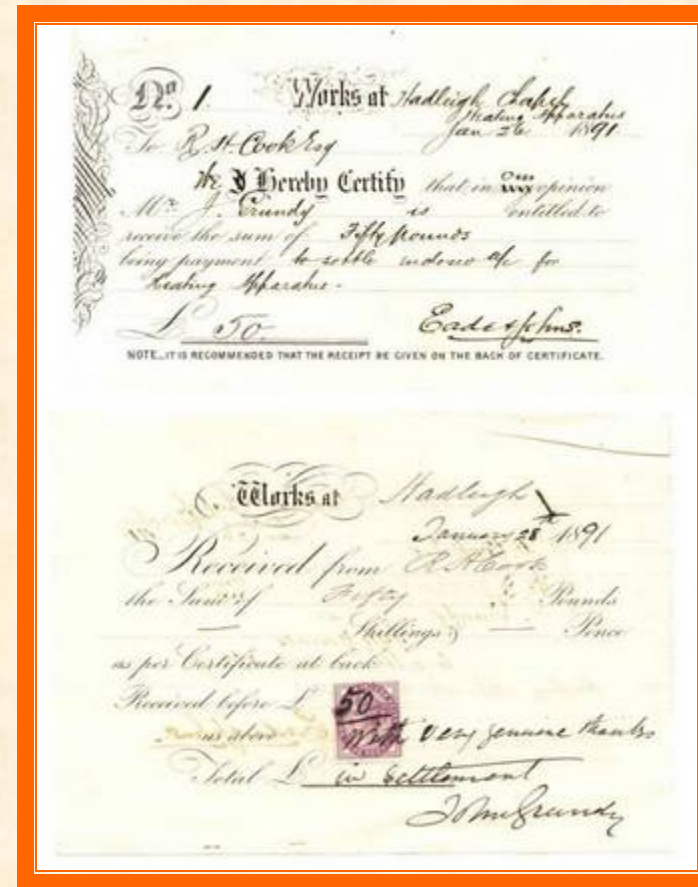 No. 1. Works at Hadleigh Chapel
Heating Apparatus
Jan 26 1891.
To R. H. Cook Esq
We I Hereby Certify that in our my opinion
Mr. J. Grundy is entitled to
receive the sum of Fifty pounds
being payment to settle a/c for
Heating Apparatus.
£ 50. Eade & Johns.
NOTE_IT IS RECOMMENDED THAT THE RECEIPT BE GIVEN ON THE BACK OF CERTIFICATE.
Works at Hadleigh
January 28th 1891
Received from R H Cook
the Sum of Fifty Pounds
— Shillings & — Pence
as per Certificate at back
Received before £ 50
as above With very genuine thanks
Total £ in settlement
John Grundy